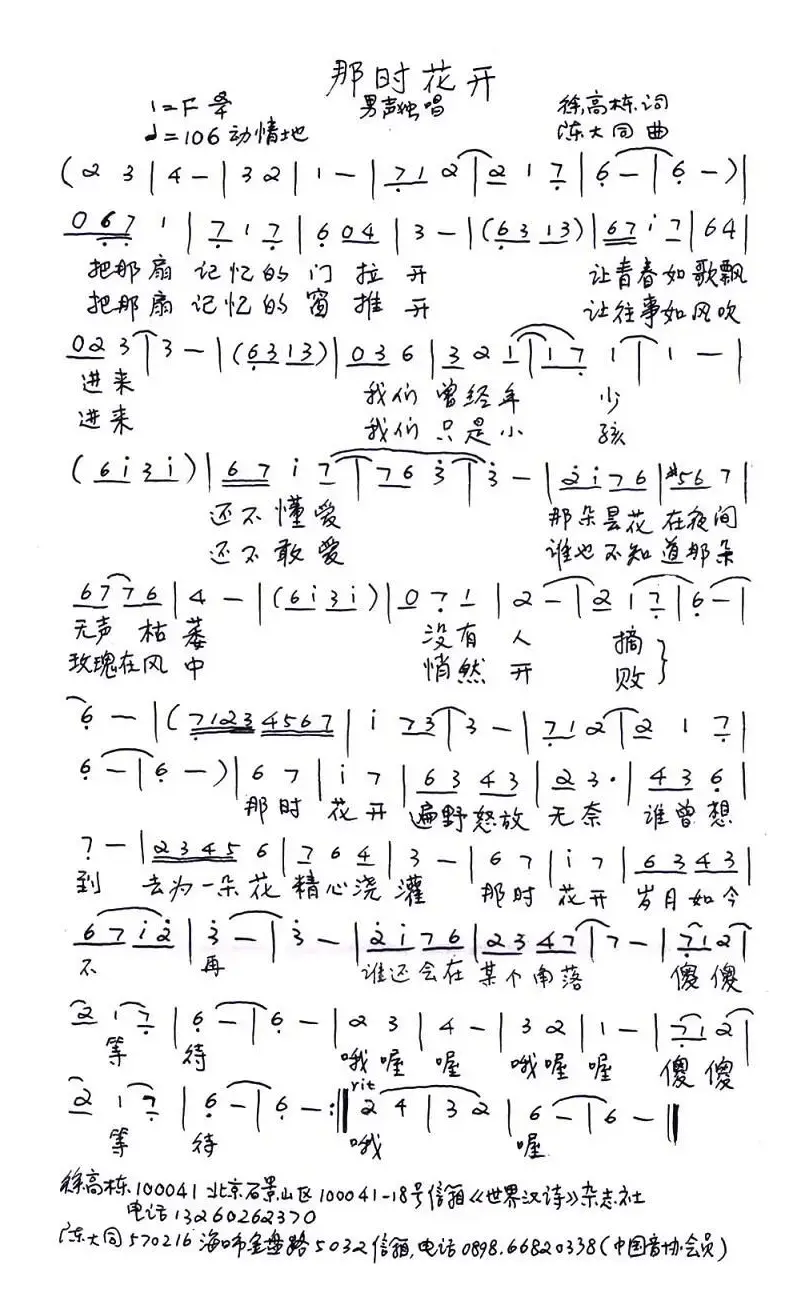 那时花开
1=F 4/4 男声独唱 徐高栋 词
♩=106 动情地 陈大同 曲
(2 3 | 4 - | 3 2 | 1 - | 7 1 2 | 2 1 7 | 6 - | 6 - ) |
0 6 7 1 | 7 1 7 | 6 0 4 | 3 - | (6 3 1 3) | 6 7 i 7 | 6 4 |
把那扇 记忆的 门 拉 开 让青春如歌飘
把那扇 记忆的 窗 推 开 让往事如风吹
0 2 3 | 3 - | (6 3 1 3) | 0 3 6 | 3 2 1 | 1 7 1 | 1 - |
进来 我们 曾经年 少
进来 我们 只是小 孩
(6 i 3 i) | 6 7 i 7 | 7 6 3 | 3 - | 2 i 7 6 | #5 6 7 |
还不懂爱 那朵昙花 在夜间
还不敢爱 谁也不知道那朵
6 7 7 6 | 4 - | (6 i 3 i) | 0 7 1 | 2 - | 2 1 7 | 6 - |
无声枯萎 没有 人 摘
玫瑰在风中 悄然 开 败
6 - | (7 1 2 3 4 5 6 7 | i 7 3 | 3 - | 7 1 2 | 2 1 7 |
6 - | 6 - ) | 6 7 | i 7 | 6 3 4 3 | 2 3 · | 4 3 6 |
那时 花开 遍野怒放 无奈 谁曾想
7 - | 2 3 4 5 6 | 7 6 4 | 3 - | 6 7 | i 7 | 6 3 4 3 |
到 去为一朵花 精心浇 灌 那时 花开 岁月如今
6 7 i 2 | 3 - | 3 - | 2 i 7 6 | 2 3 4 7 | 7 - | 7 1 2 |
不 再 谁还会在 某个角落 傻傻
2 1 7 | 6 - | 6 - | 2 3 | 4 - | 3 2 | 1 - | 7 1 2 |
等 待 哦喔 喔 哦喔 喔 傻傻
rit
2 1 7 | 6 - | 6 - :‖ 2 4 | 3 2 | 6 - | 6 - ‖
等 待 哦 喔
徐高栋 100041 北京石景山区100041-18号信箱《世界汉诗》杂志社
电话13260262370
陈大同 570216 海口市金盘路5032信箱,电话0898.66820338(中国音协会员)